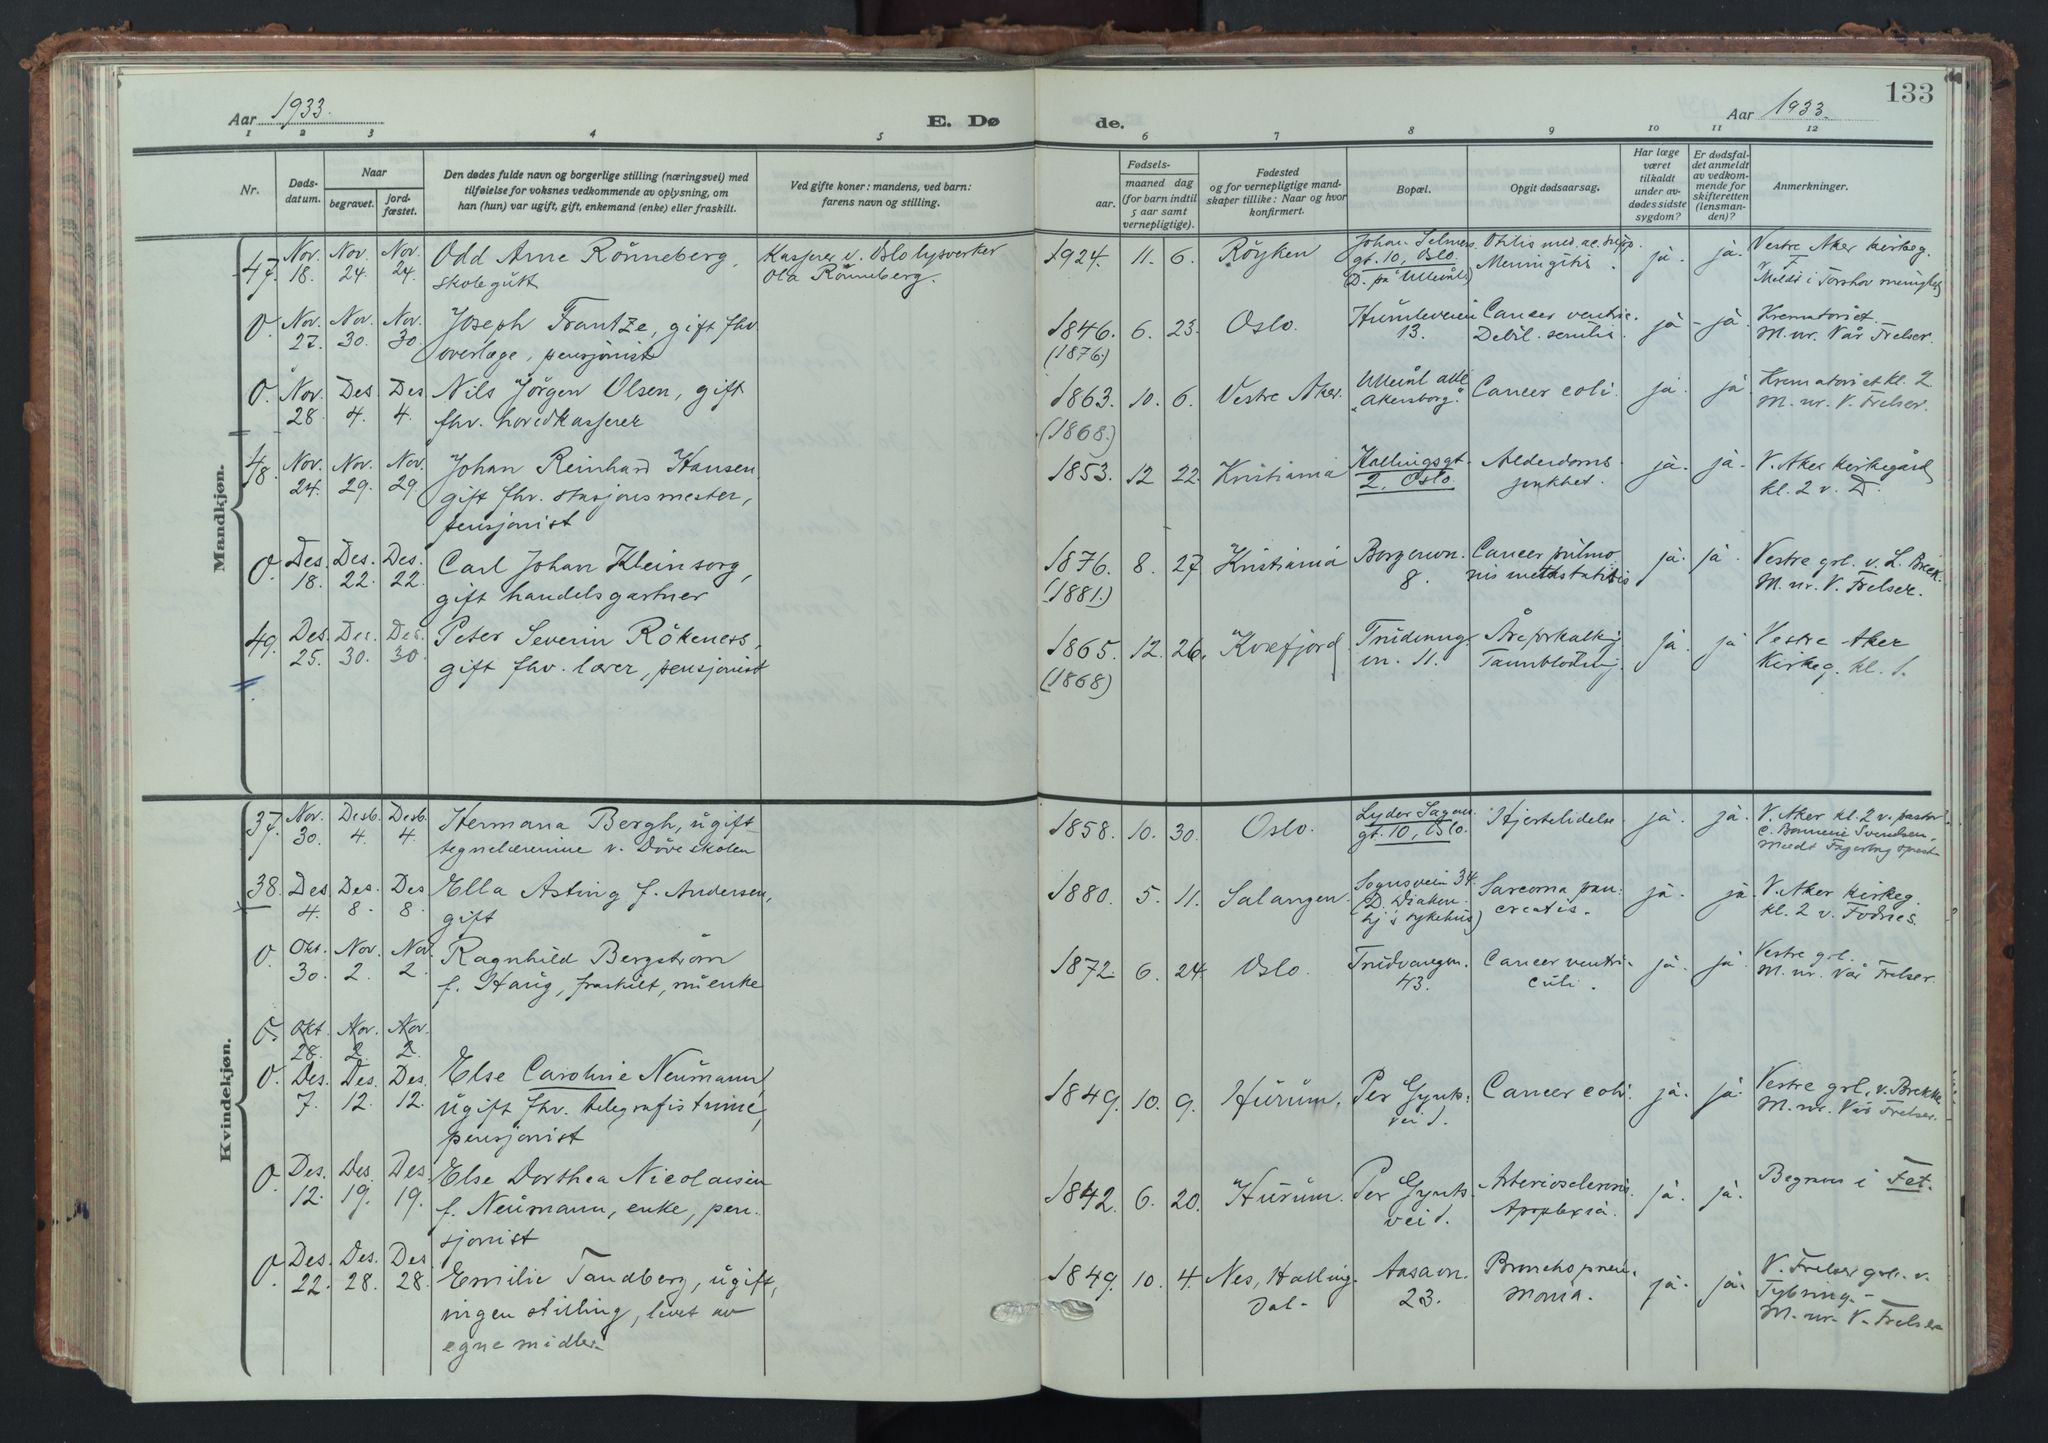 Aar 1933.
E. Dø
de.
Aar 1933.
133
1 2 3 4 5 6 7 8 9 10 11 12
Nr.
Døds-
datum.
Naar
begravet.
jord-
fæstet.
Den dødes fulde navn og borgerlige stilling (næringsvei) med
tilføielse for voksnes vedkommende av oplysning, om
han (hun) var ugift, gift, enkemand (enke) eller fraskilt.
Ved gifte koner: mandens, ved barn:
farens navn og stilling.
Fødsels-
aar.
maaned dag
(for barn indtil
5 aar samt
vernepligtige).
Fødested
og for vernepligtige mand-
skaper tillike: Naar og hvor
konfirmert.
Bopæl.
Opgit dødsaarsag.
Har læge
været
tilkaldt
under av-
dødes sidste
sygdom?
Er dødsfal-
det anmeldt
av vedkom-
mende for
skifteretten
(lensman-
den)?
Anmerkninger.
Mandkjøn.
47. Nov. 18. Nov. 24. Nov. 24. Odd Arne Rönneberg, Kasserer v. Oslo lysverker 1924. 11. 6. Röyken Johan Selmers Otitis med. ac. supp. ja. ja. Vestre Aker kirkeg.
skolegutt Ola Rönneberg. gt. 10, Oslo. Meningitis. v. F.
(D. på Ullevål) Meldt i Torshov menighet
0 Nov. 27. Nov. 30. Nov. 30. Joseph Frantze, gift fhv. 1846. 6. 23. Oslo. Humleveien Cancer ventric. ja - ja. Krematoriet.
overlæge, pensjonist (1876.) 13. Debil. senilis. M. nr. Vår Frelser.
0. Nov. 28. Des 4. Des 4. Nils Jörgen Olsen, gift 1863. 10. 6. Vestre Aker. Ullevål allé Cancer coli. ja. ja Krematoriet kl. 2
fhv. hovedkasserer (1868.) "Akersborg". M. nr. V. Frelser.
48. Nov. 24. Nov. 29. Nov. 29 Johan Reinhard Hansen 1853. 12 22. Kristiania Kallingsgt. Alderdoms ja. ja. V. Aker kirkegård
gift fhv. stasjonsmester, 2, Oslo. svakhet. kl. 2 v. D.
pensjonist
0. Des. 18. Des. 22. Des. 22 Carl Johan Kleinsorg, 1876. 8. 27 Kristiania Borgenvn. Cancer pulmo ja. ja. Vestre grl. v. L. Brek.
gift handelsgartner (1881.) 8. nis metastatis M. nr. V. Frelser.
49. Des. 25. Des. 30. Des. 30 Peter Severin Rökenes, 1865. 12. 26. Kvæfjord Trudvang Åreforkalkn. ja. ja Vestre Aker
gift fhv. lærer, pensjonist (1868) vn. 11. Kirkeg. kl. 1.
Kvindekjøn.
37. Nov. 30. Desb. 4. Desb. 4. Hermana Bergh, ugift 1858. 10. 30. Oslo. Lyder Sagens Hjertelidelse. ja. ja. V. Aker kl. 2 v. pastor
tegnelærerinne v. Döveskolen gt. 10, Oslo. Svendsen.
Meldt Fagerborg
38. Des. 4. Des. 8. Des 8. Ella Asting f. Andersen, 1880. 5. 11. Salangen. Sognsvein 34. Sarcoma pan- ja. ja. V. Aker kirkeg.
gift (D. Diakon. creatis. kl. 2 v. Fodnes.
hj's sykehus)
0. Okt. 30. Nov. 2. Nov. 2. Ragnhild Bergström 1872. 6. 24. Oslo. Trudvangvn. Cancer ventri- ja. ja. Vestre grl.
f. Haug, fraskilt, nu enke 43. culi. M. nr. Vår Frelser.
0. Okt. 28. Nov. 2. Nov. 2.
0. Des. 7. Des. 12. Des. 12. Else Caroline Neumann, 1849. 10. 9. Hurum. Per Gynts Cancer coli ja. ja. Vestre grl. v. Brekke
ugift fhv. telegrafistinne, vei 1. M. nr. Vår Frelser.
pensjonist
0. Des. 12. Des. 19. Des. 19. Else Dorthea Nicolaisen 1842. 6. 20. Hurum. Per Gynts Arteriosclerosis. ja. ja. Begraves i Fet.
f. Neumann, enke, pen- vei 1. Apoplexia.
sjonist
0. Des. 22. Des. 28. Des 28. Emilie Tandberg, ugift, 1849. 10. 4. Nes, Halling- Aasavn. Bronchopneu- ja. ja. V. Frelser grl. v.
ingen stilling, levet av dal. 23. monia. Tybring.
egne midler. M. nr. V. Frelser